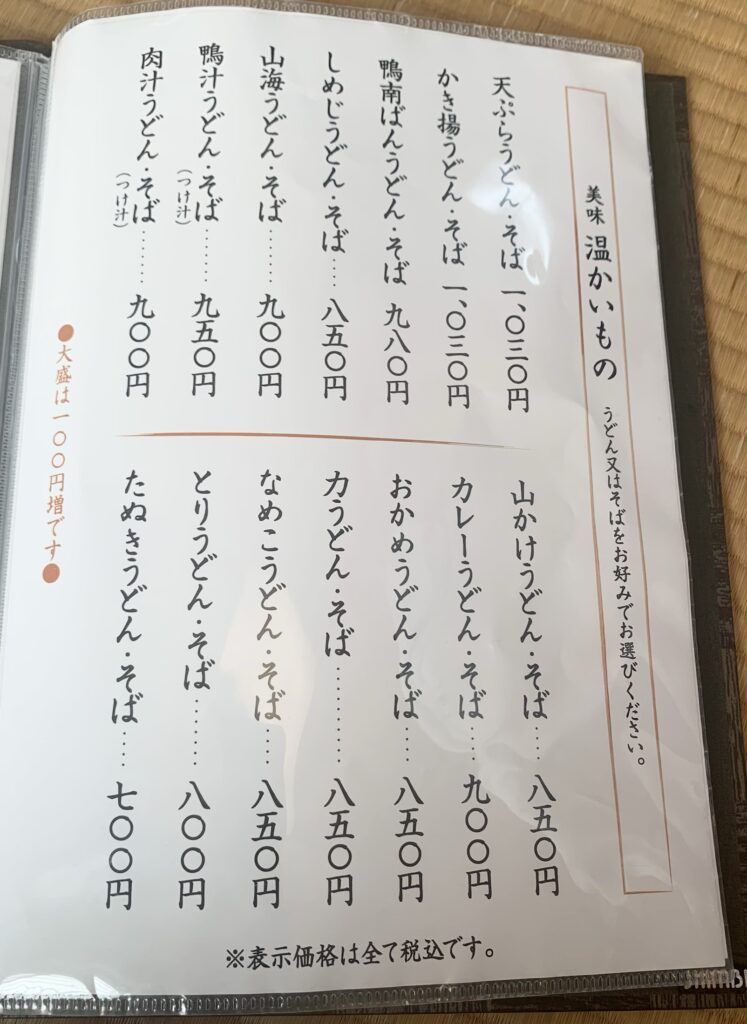 美味 温かいもの うどん又はそばをお好みでお選びください。
天ぷらうどん・そば 一、〇三〇円
かき揚うどん・そば 一、〇三〇円
鴨南ばんうどん・そば 九八〇円
しめじうどん・そば‥‥八五〇円
山海うどん・そば………九〇〇円
鴨汁うどん・そば………九五〇円
(つけ汁)
肉汁うどん・そば………九〇〇円
(つけ汁)
山かけうどん・そば‥‥八五〇円
カレーうどん・そば‥‥九〇〇円
おかめうどん・そば‥‥八五〇円
力うどん・そば…………八五〇円
なめこうどん・そば‥‥八五〇円
とりうどん・そば………八〇〇円
たぬきうどん・そば‥‥七〇〇円
●大盛は一〇〇円増です●
※表示価格は全て税込です。